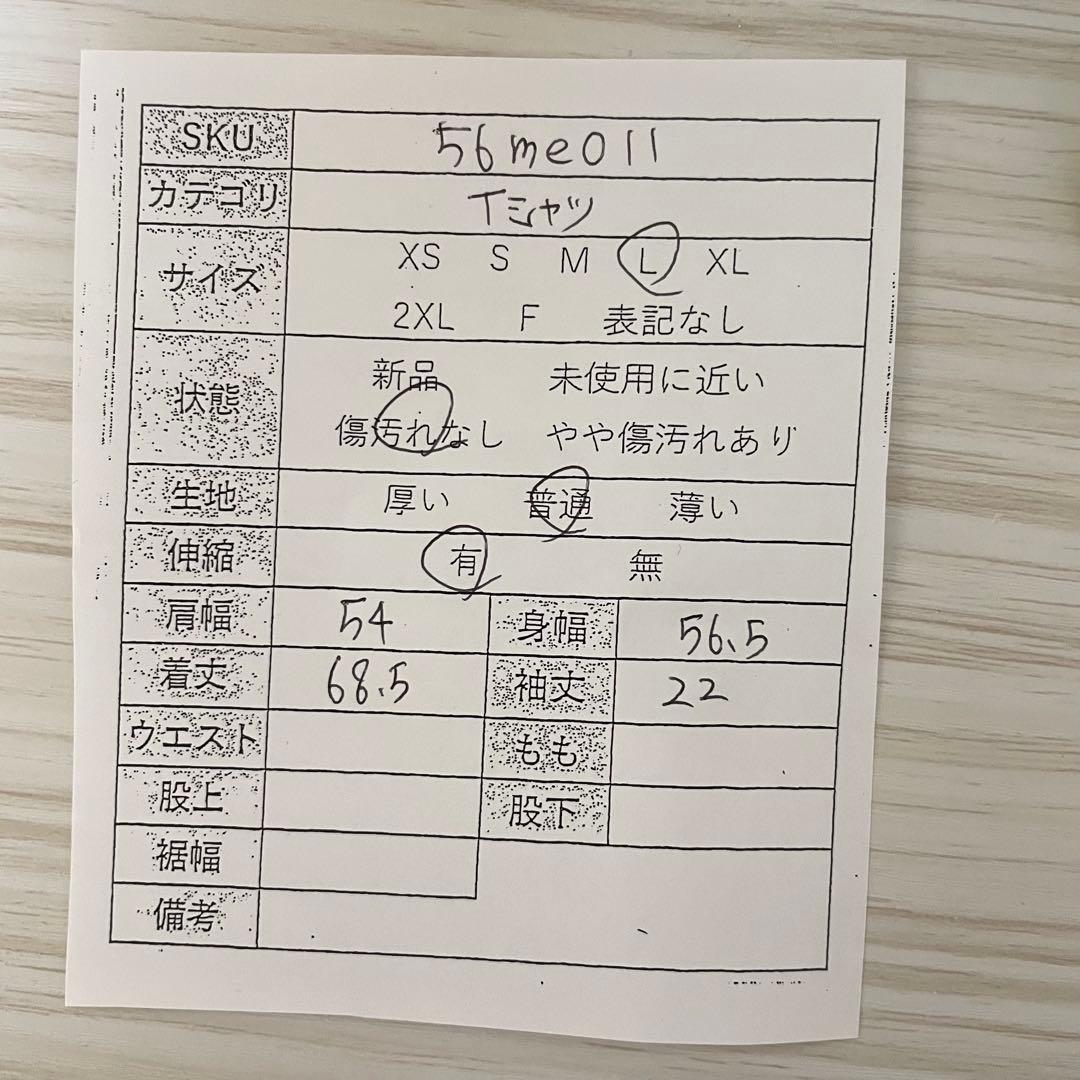 SKU 56me011
カテゴリ Tシャツ
サイズ XS S M L XL
2XL F 表記なし
状態 新品 未使用に近い
傷汚れなし やや傷汚れあり
生地 厚い 普通 薄い
伸縮 有 無
肩幅 54 身幅 56.5
着丈 68.5 袖丈 22
ウエスト もも
股上 股下
裾幅
備考